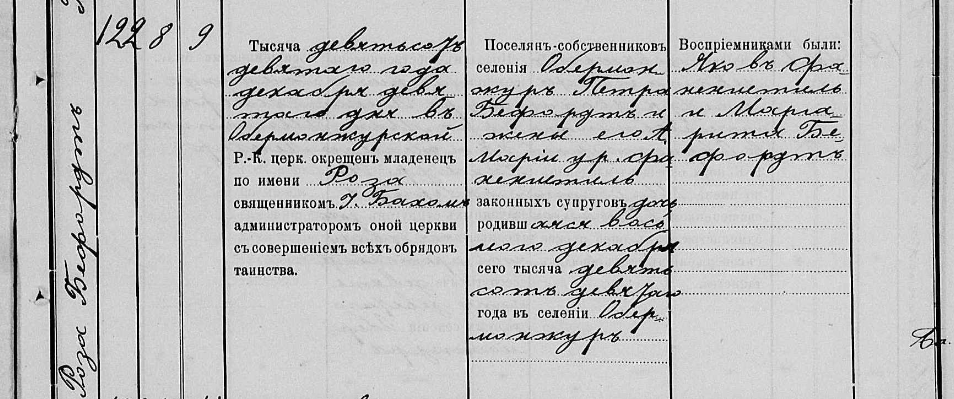 Роза Бефордтъ
122 8 9
Тысяча девятьсотъ
девятаго года
декабря девя
таго дня въ
Обермонжурской
Р.-К. церк. окрещенъ младенецъ
по имени Роза
священникомъ I. Бахомъ
администраторомъ оной церкви
съ совершеніемъ всѣхъ обрядовъ
таинства.
Поселянъ-собственниковъ
селенія Обермон
журъ Петра
Бефордтъ и
жены его А.
Маріи ур. Фа
некиштиль
законныхъ супруговъ дочь
родивш аяся вось
мого декабря
сего тысяча девять
сотъ девятаго
года въ селеніи Обер
монжуръ
Воспріемниками были:
Яковъ Фа
некиштиль
и Марга
рита Бе
фордтъ